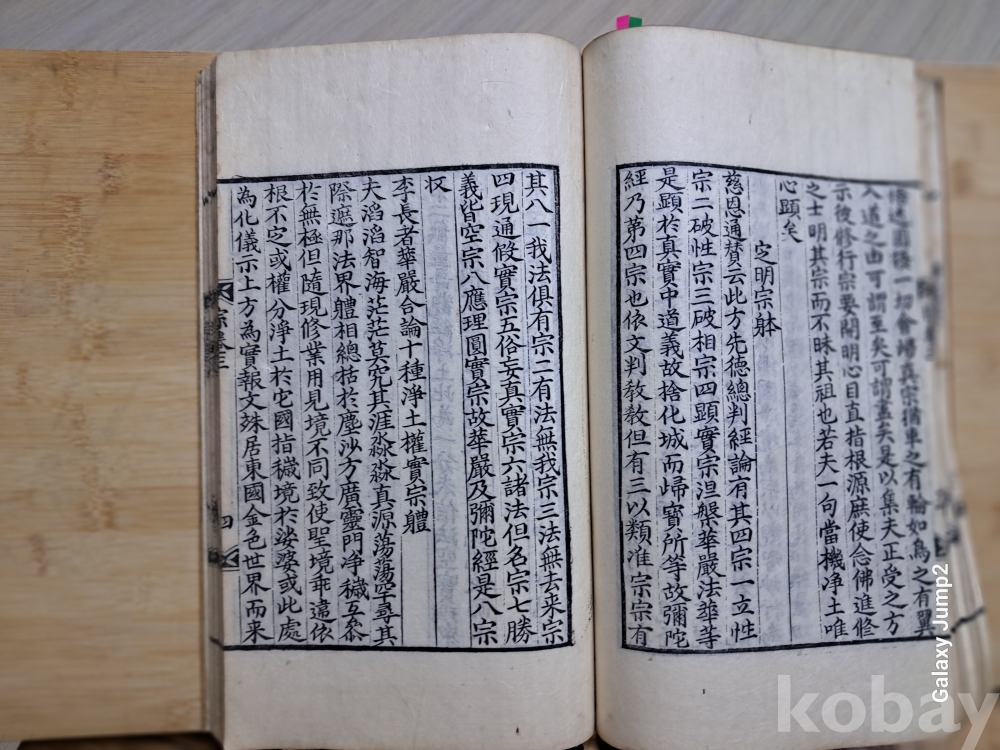 一切會歸真宗猶車之有輪如鳥之有翼
入道之由可謂至矣可謂盡矣是以集夫正受之方
示後修行宗要開明心目直指根源庶使念佛進修
之士明其宗而不昧其祖也若夫一句當機净土唯
心顯矣
定明宗躰
慈恩通賛云此方先德總判經論有其四宗一立性
宗二破性宗三破相宗四顯實宗涅槃華嚴法華等
是顯於真實中道義故捨化城而歸寳所等故彌陀
經乃苐四宗也依文判教教但有三以類准宗宗有
其八一我法俱有宗二有法無我宗三法無去来宗
四現通假實宗五俗妄真實宗六諸法但名宗七勝
義皆空宗八應理圓實宗故華嚴及彌陀經是八宗
収
李長者華嚴合論十種淨土權實宗體
夫滔滔智海茫茫莫究其涯淼淼真源蕩蕩罕尋其
際遮那法界體相總括於塵沙方廣靈門净穢互叅
於無極但隨現修業用見境不同致使聖境乖違依
根不定或權分淨土於它國指穢境於娑婆或此處
為化儀示上方為實報文殊居東國金色世界而来
宗
四
Galaxy Jump2
kobay